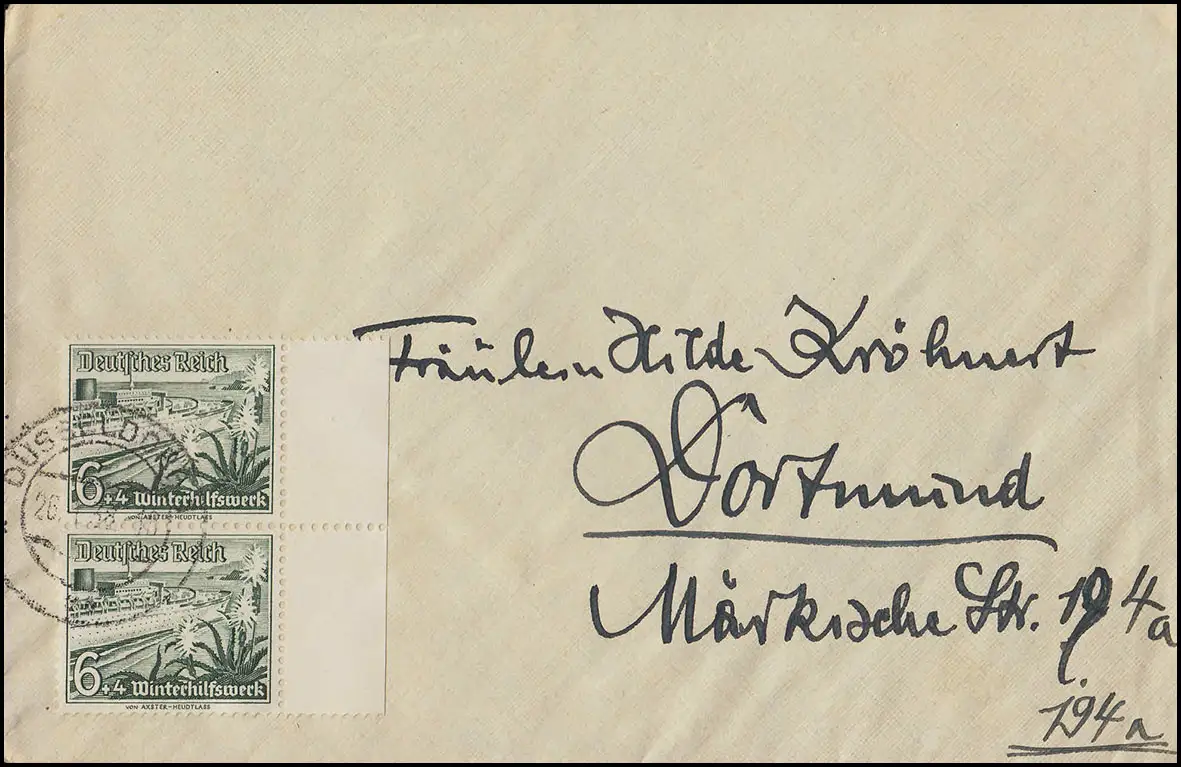 Fräulein Hilde Kröhnert
Dortmund
Märkische Str. 194a
194a
Deutsches Reich
6+4 Winterhilfswerk
VON AXSTER-HEUDTLASS
Deutsches Reich
6+4 Winterhilfswerk
VON AXSTER-HEUDTLASS
DÜSSELDORF